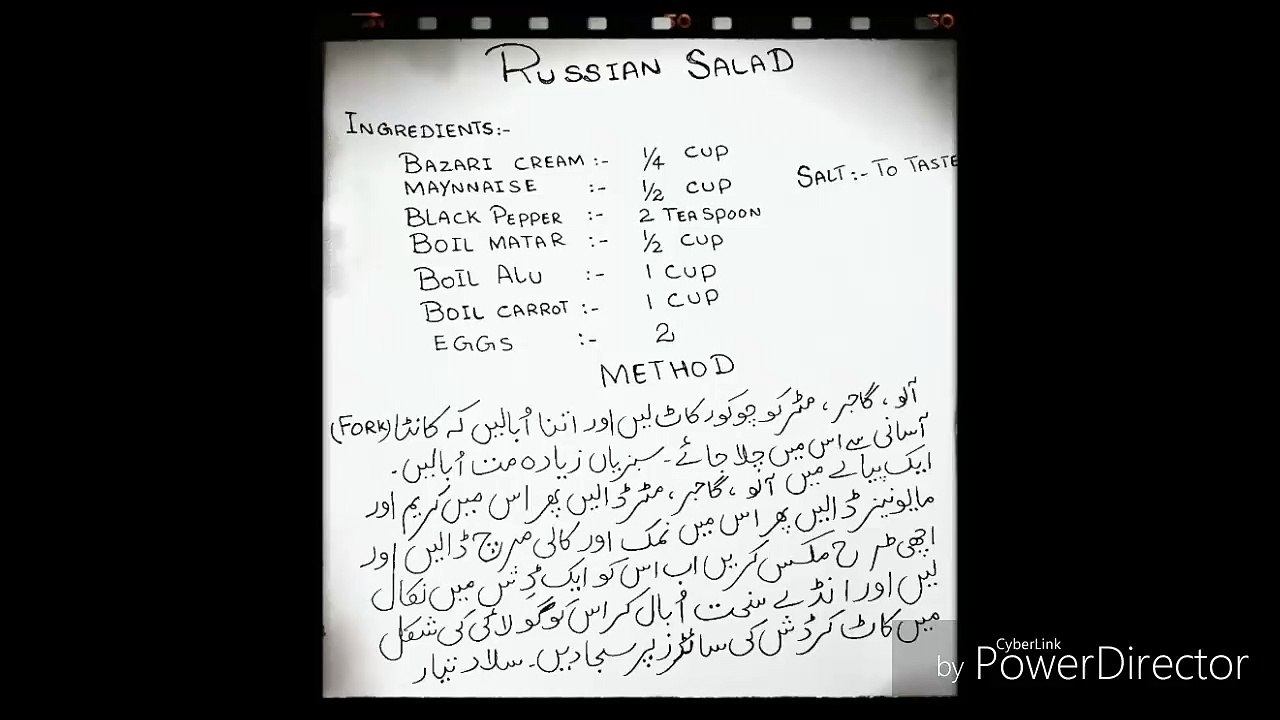 RUSSIAN SALAD
INGREDIENTS:-
BAZARI CREAM :- 1/4 CUP
SALT :- TO TASTE
MAYNNAISE :- 1/2 CUP
BLACK PEPPER :- 2 TEASPOON
BOIL MATAR :- 1/2 CUP
BOIL ALU :- 1 CUP
BOIL CARROT :- 1 CUP
EGGS :- 2
METHOD
آلو ، گاجر ، مٹر کو چوکور کاٹ لیں اور اتنا اُبالیں کہ کانٹا (FORK)
آسانی سے اس میں چلا جائے۔ سبزیاں زیادہ مت اُبالیں۔
ایک پیالے میں آلو ، گاجر ، مٹر ڈالیں پھر اس میں کریم اور
مایونیز ڈالیں پھر اس میں نمک اور کالی مرچ ڈالیں اور
اچھی طرح مکس کریں اب اس کو ایک ڈِش میں نکال
لیں اور انڈے سخت اُبال کر اس کو گولائی کی شکل
میں کاٹ کر ڈش کی سائڈز پر سجا دیں۔ سلاد تیار
CyberLink
by PowerDirector